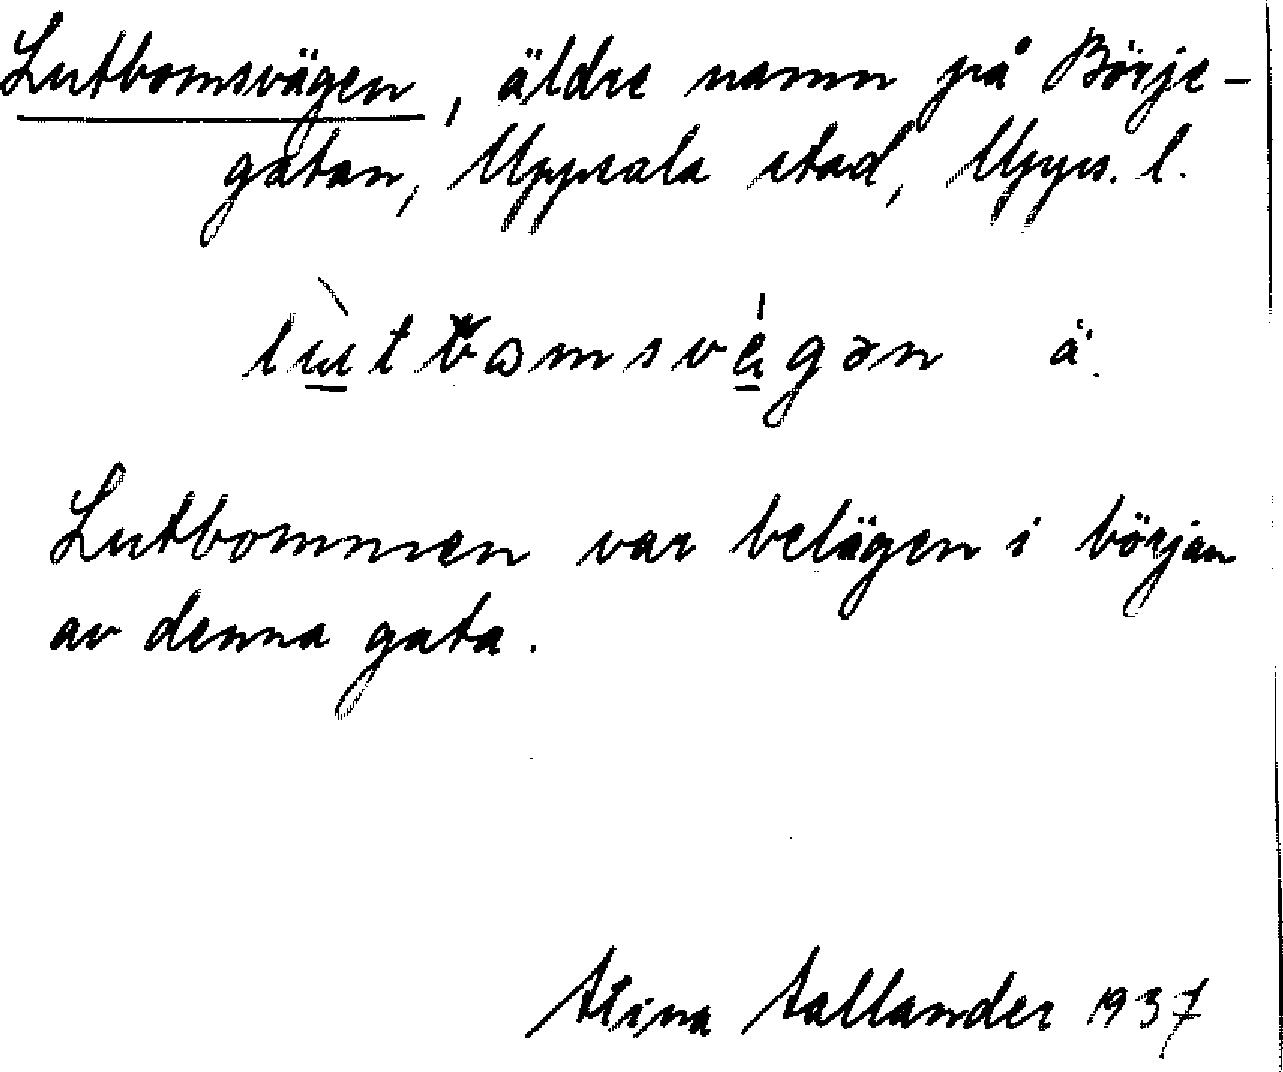 Lutbomsvägen, äldre namn på Börje-
gatan, Uppsala stad, Upps. l.
lùtbɷmsvä́gən ä.
Lutbommen var belägen i början
av denna gata.
Stina Sallander 1937